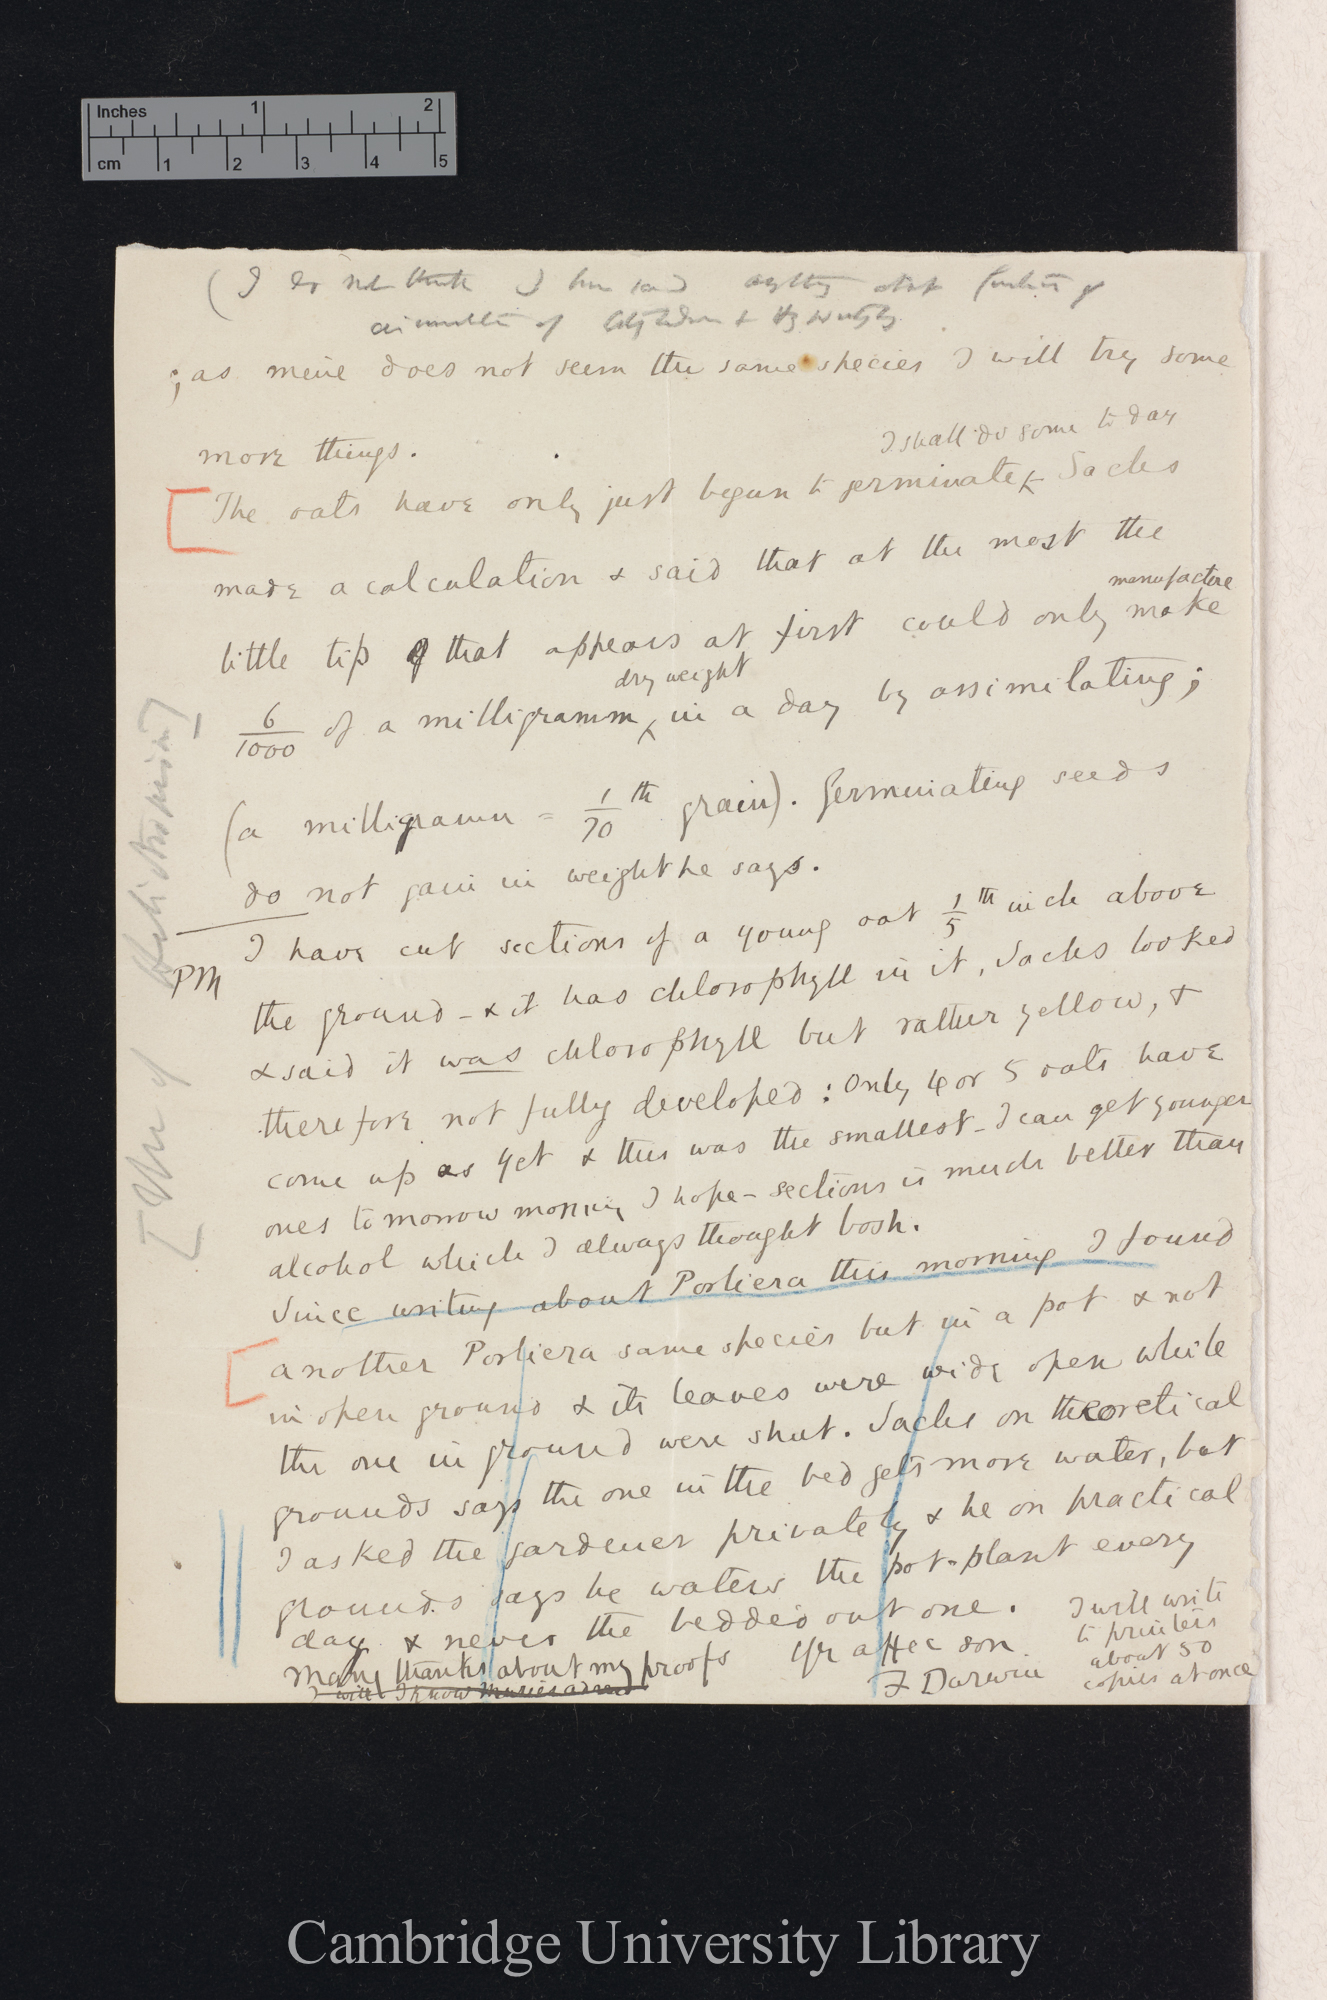 Inches 1 2
cm 1 2 3 4 5
(I do not think I have said anything about function of
circumnutation of Cotyledons &
; as mine does not seem the same species I will try some
more things.
I shall do some to day
The oats have only just begun to germinate, Sachs
made a calculation & said that at the most the
manufacture
little tip that appears at first could only make
dry weight
6/1000 of a milligramm, in a day by assimilating;
(a milligramm = 1/70 th grain). Germinating seeds
do not gain in weight he says.
PM
I have cut sections of a young oat 1/5 th inch above
the ground - & it has chlorophyll in it, Sachs looked
& said it was chlorophyll but rather yellow, &
therefore not fully developed: Only 4 or 5 oats have
come up as yet & this was the smallest - I can get younger
ones tomorrow morning I hope - sections is much better than
alcohol which I always thought bosh.
Since writing about Porliera this morning I found
another Porliera same species but in a pot & not
in open ground & its leaves were wide open while
the one in ground were shut. Sachs on theoretical
grounds says the one in the bed gets more water, but
I asked the gardener privately & he on practical
grounds says he waters the pot-plant every
day & never the bedded out one.
Yr affec son
F Darwin
Many thanks about my proofs
I will I know Murie's adress
I will write
to printers
about 50
copies at once
[Use of Heliotropism]
Cambridge University Library